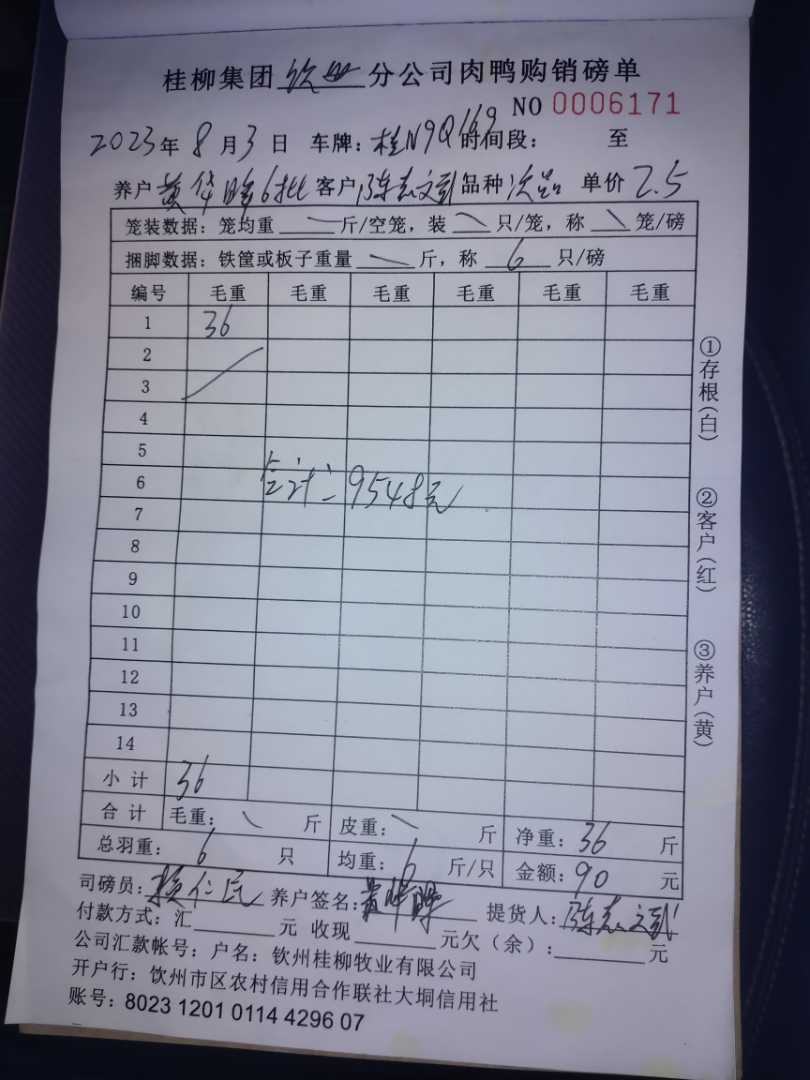 桂柳集团 钦州 分公司肉鸭购销磅单
NO 0006171
2023年 8月3日 车牌：桂N9Q169 时间段： 至
养户 黄华 6批 客户 陈志文 品种 次品 单价 2.5
笼装数据：笼均重 斤/空笼，装 只/笼，称 笼/磅
捆脚数据：铁筐或板子重量 斤，称 6 只/磅
编号 毛重 毛重 毛重 毛重 毛重 毛重
1 36
2
3
4
5
6
合计：9548元
7
8
9
10
11
12
13
14
小计 36
合计 毛重： 斤 皮重： 斤 净重：36 斤
总羽重：6 只 均重：6 斤/只 金额：90 元
司磅员： 仁 养户签名： 提货人：陈志文
付款方式：汇 元 收现 元欠（余）： 元
公司汇款帐号：户名：钦州桂柳牧业有限公司
开户行：饮州市区农村信用合作联社大垌信用社
账号：8023 1201 0114 4296 07
①存根（白）
②客户（红）
③养户（黄）